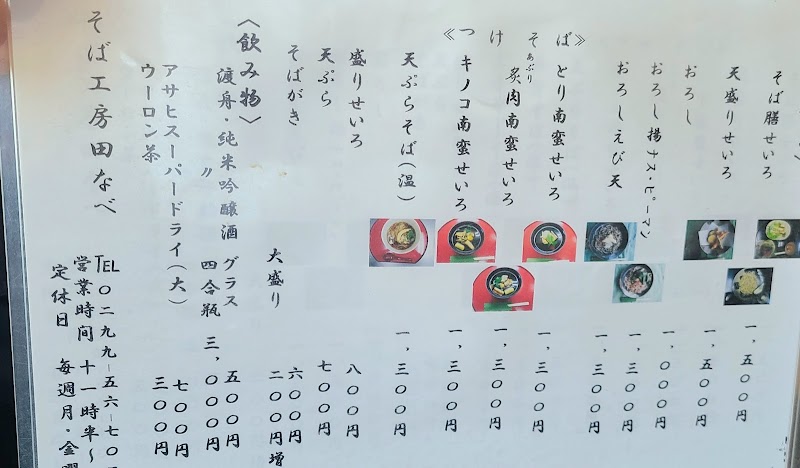 そば膳せいろ 一,五〇〇円
天盛りせいろ 一,五〇〇円
おろし 一,〇〇〇円
おろし揚ナス・ピーマン 一,三〇〇円
おろしえび天 一,三〇〇円
《つけそば》
とり南蛮せいろ 一,三〇〇円
あぶり
炙肉南蛮せいろ 一,三〇〇円
キノコ南蛮せいろ 一,三〇〇円
天ぷらそば(温) 一,三〇〇円
盛りせいろ 八〇〇円
天ぷら 七〇〇円
そばがき 六〇〇円
大盛り 二〇〇円増
〈飲み物〉
渡舟・純米吟醸酒 グラス 五〇〇円
〃 四合瓶 三,〇〇〇円
アサヒスーパードライ(大) 七〇〇円
ウーロン茶 三〇〇円
そば工房田なべ
TEL 〇二九九-五六-七〇
営業時間 十一時半～
定休日 毎週月・金曜